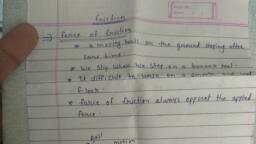 friction
→ force of friction
* a moving ball on the ground stoping after
some time.
* We slip when we step on a banana
* It difficult to walk on a smooth and
floor.
* force of friction always opposes the applied
force.
Ball
motion